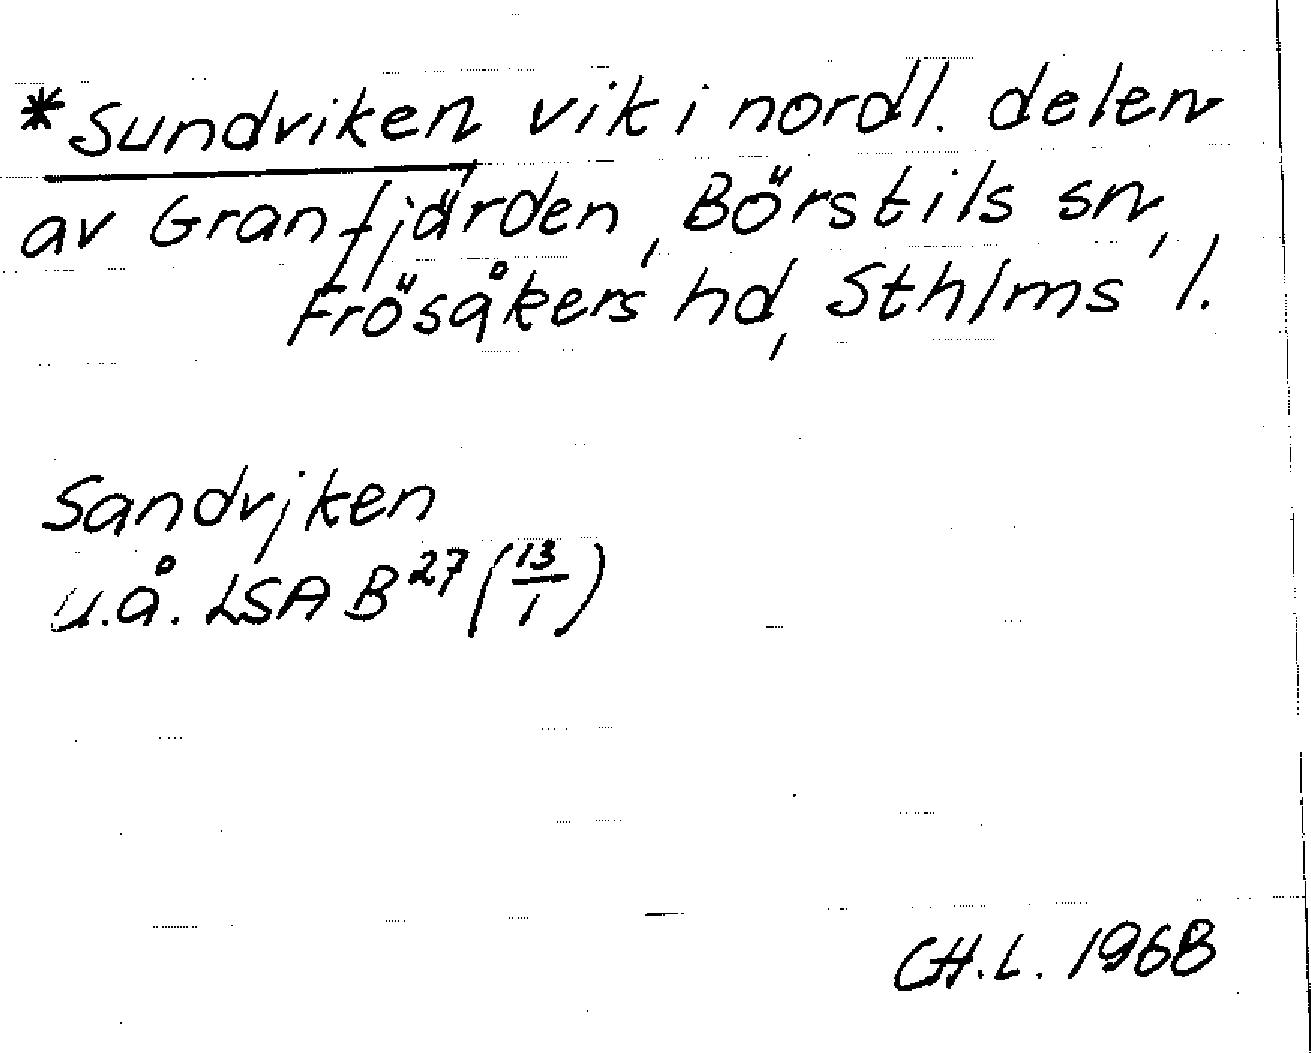 *Sundviken vik i nordl. delen
av Granfjärden, Börstils sn,
Frösåkers hd, Sthlms l.
Sandvjken
u.å. LSA B27 (13/1)
CH.L. 1968